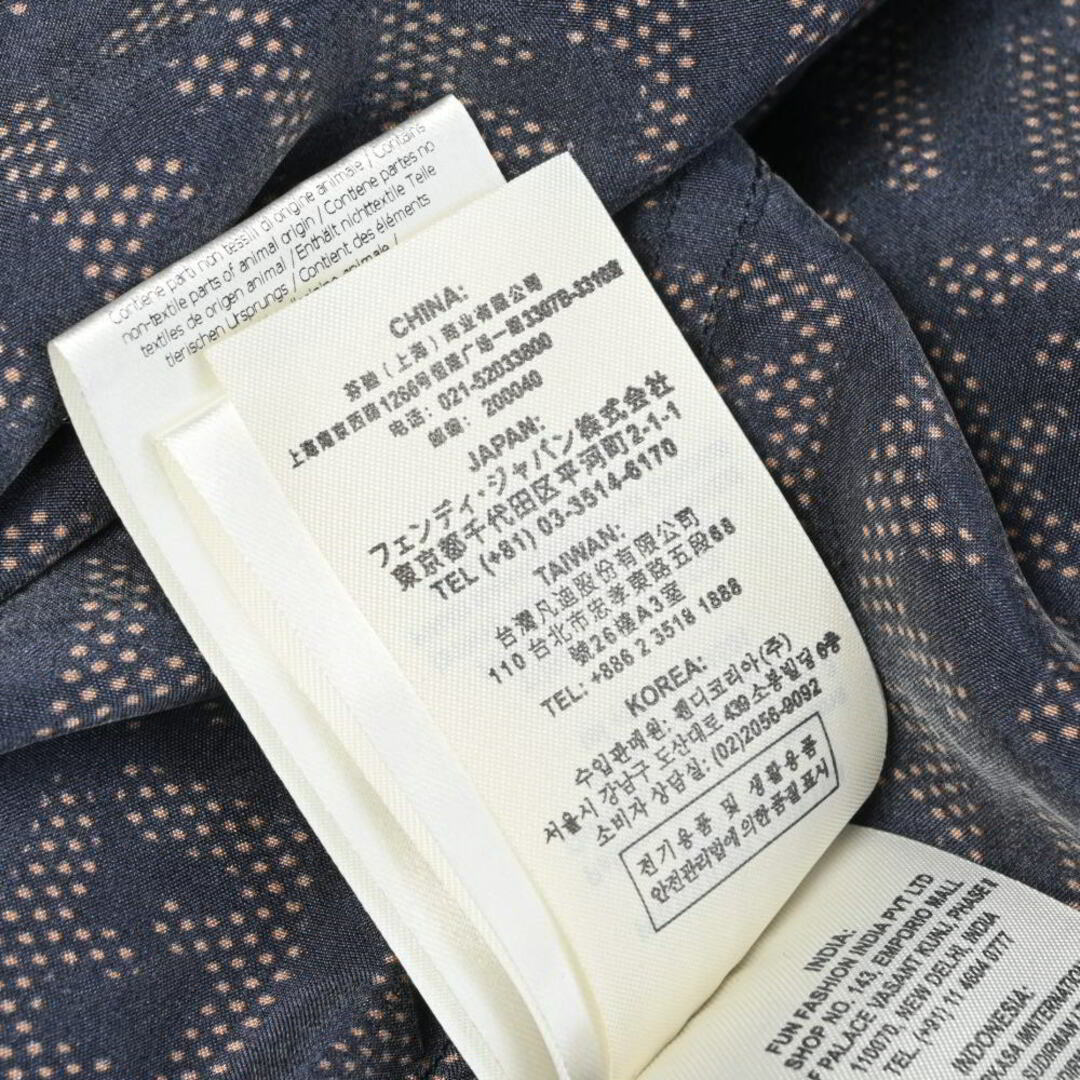 Contiene parti non tessili di origine animale / Contains
non-textile parts of animal origin / Contiene partes no
textiles de origen animal / Enthält nichttextile Teile
tierischen Ursprungs / Contient des éléments
animale /
CHINA:
芬迪（上海）商业有限公司
上海南京西路1266号恒隆广场一期3307B-3318室
电话: 021-52033800
邮编: 200040
JAPAN:
フェンディ・ジャパン株式会社
東京都千代田区平河町2-1-1
TEL (+81) 03-3514-6170
TAIWAN:
台灣凡迪股份有限公司
110 台北市忠孝東路五段68
號26樓A3室
TEL: +886 2 3518 1888
KOREA:
수입판매원: 펜디코리아(주)
서울시 강남구 도산대로 439 소봉빌딩 6층
소비자 상담실: (02)2056-9092
전기용품 및 생활용품
안전관리법에 의한 품질표시
INDIA:
FUN FASHION INDIA PVT LTD
SHOP NO. 143, EMPORIO MALL
PALACE VASANT KUNJ, PHASE II
110070, NEW DELHI, INDIA
TEL. (+91) 11 4604 0777
INDONESIA: